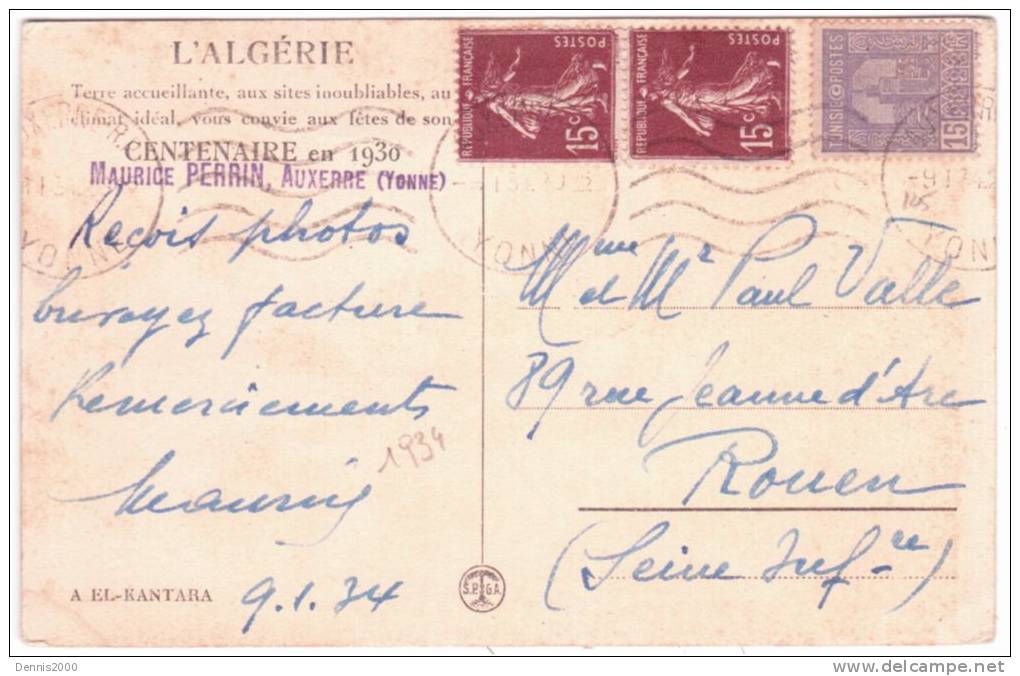 L'ALGÉRIE
Terre accueillante, aux sites inoubliables, au
climat idéal, vous convie aux fêtes de son
CENTENAIRE en 1930
MAURICE PERRIN, AUXERRE (YONNE)
Reçois photos
Envoyez facture
Remerciements
Maurice
1934
A EL-KANTARA
9.1.34
S.P.G.A.
REPUBLIQUE FRANÇAISE
POSTES
15c
REPUBLIQUE FRANÇAISE
POSTES
15c
TUNISIE POSTES
15
YONNE
YONNE
Mme et Mr Paul Valle
89 rue Jeanne d'Arc
Rouen
(Seine Infre)
Dennis2000
delcampe.net